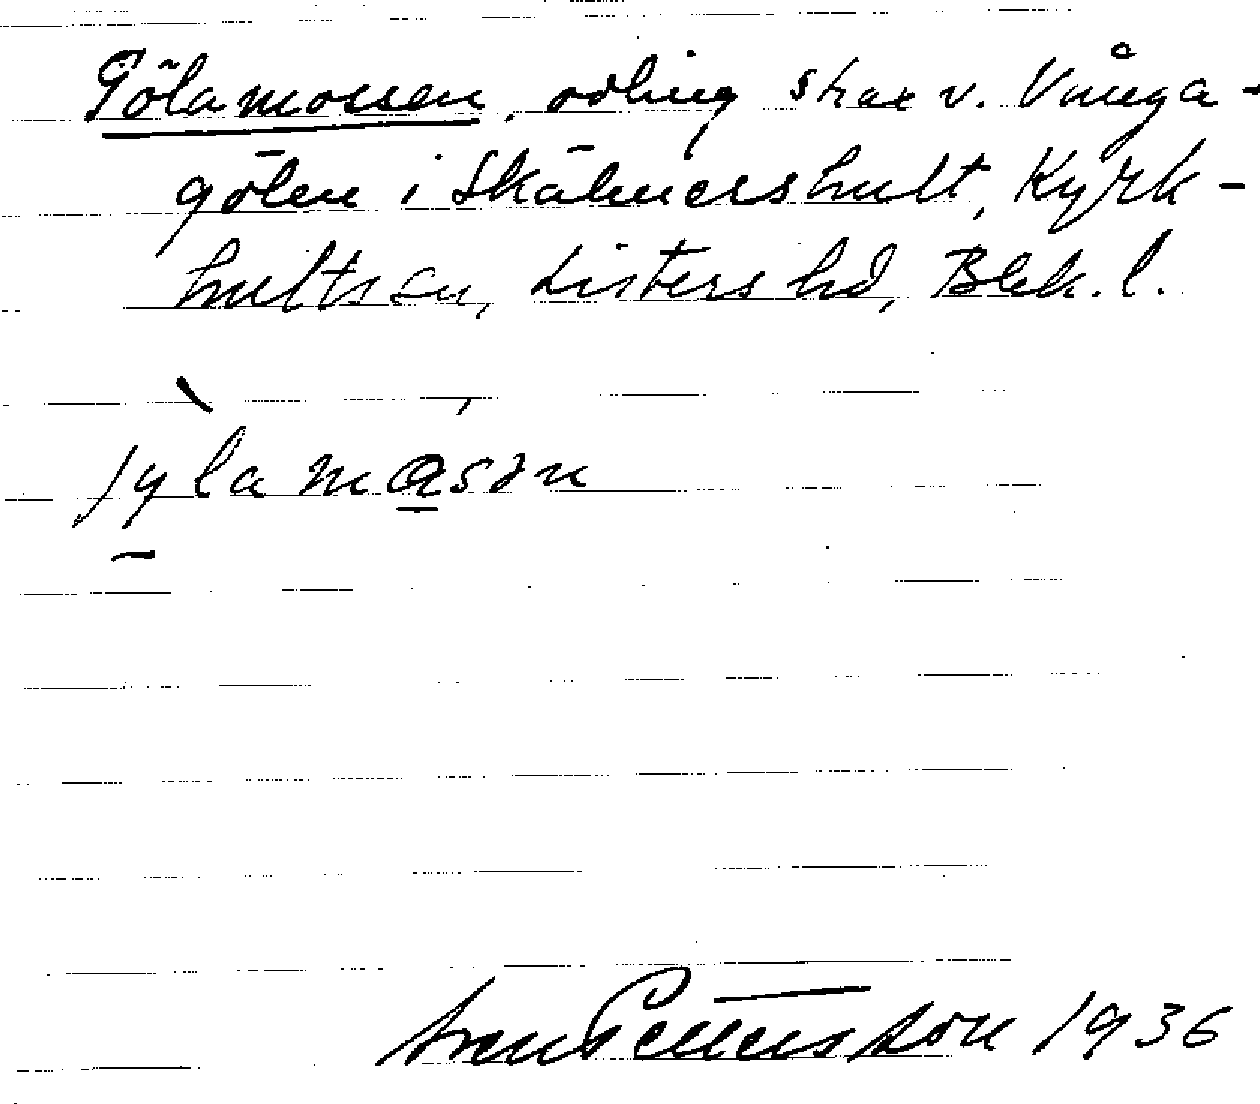 Gölamossen, odling strax v. Vånga-
gölen i Skälmershult, Kyrk-
hults sn, Listers hd, Blek. l.
jylamåsən
Sven Pettersson 1936